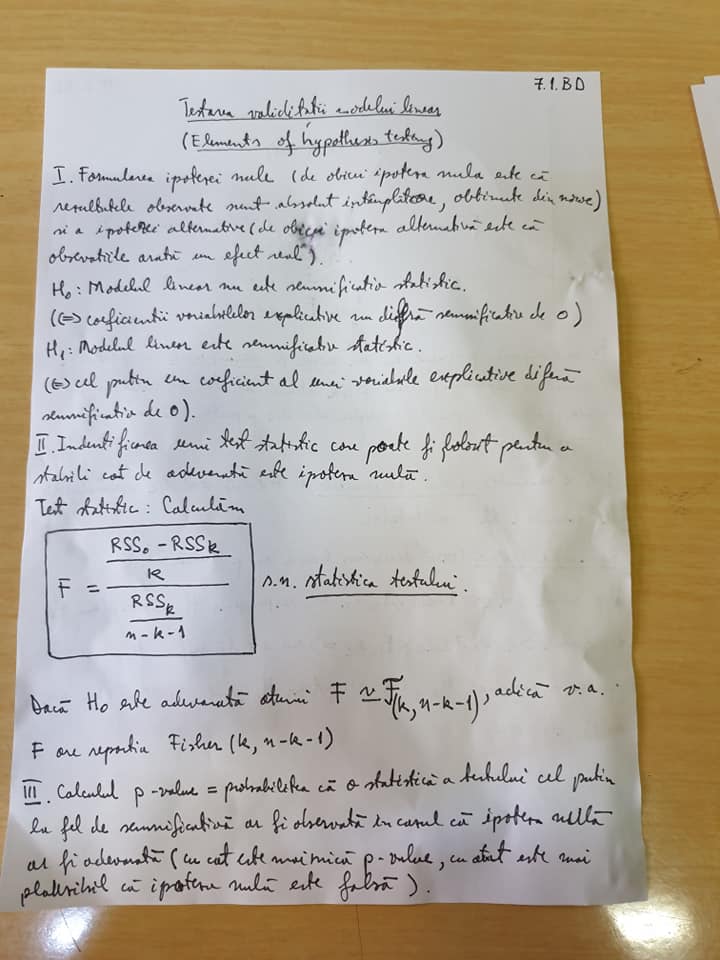 7.1.BD
Testarea validitatii modelului linear
(Elements of hypothesis testing)
I. Formularea ipotezei nule (de obicei ipoteza nula este că
rezultatele observate sunt absolut întâmplătoare, obtinute din
si a ipotezei alternative (de obicei ipoteza alternativă este că
observatiile arată un efect real).
H0: Modelul linear nu este semnificativ statistic.
(⇔ coeficientii variabilelor explicative nu diferă semnificativ de 0)
H1: Modelul linear este semnificativ statistic.
(⇔ cel putin un coeficient al unei variabile explicative diferă
semnificativ de 0).
II. Indentificarea unui test statistic care poate fi folosit pentru a
stabili cat de adevarată este ipoteza nulă.
Test statistic: Calculăm
F = ((RSS0 - RSSk) / k) / (RSSk / (n-k-1)) s.n. statistica testului.
Dacă H0 este adevarată atunci F ≃ F(k, n-k-1), adică v.a.
F are repartitia Fisher (k, n-k-1)
III. Calculul p-value = probabilitatea că o statistică a testului cel putin
la fel de semnificativă ar fi observată in cazul că ipoteza nulă
ar fi adevarată (cu cat este mai mică p-value, cu atat este mai
plausibil că ipoteza nulă este falsă).